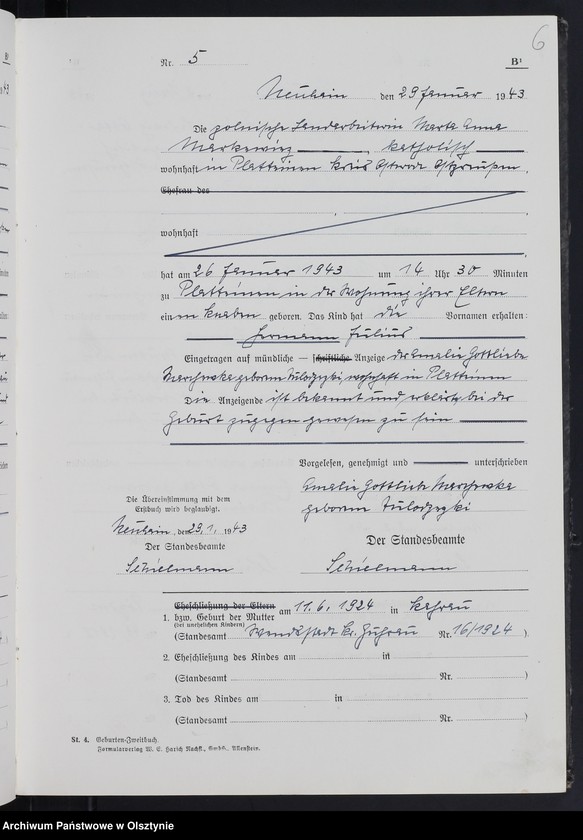 6
Nr. 5
B¹
Neuhain den 29 Januar 1943
Die polnische Landarbeiterin Marta Anna
Markewicz, katholisch
wohnhaft in Platteinen Kreis Osterode Ostpreußen.
Ehefrau des
wohnhaft
hat am 26 Januar 1943 um 14 Uhr 30 Minuten
zu Platteinen in der Wohnung ihrer Eltern
einen Knaben geboren. Das Kind hat die Vornamen erhalten:
Hermann Julius
Eingetragen auf mündliche — schriftliche Anzeige der Amalie Gottliebe
geborene wohnhaft in Platteinen
Die Anzeigende ist bekannt und erklärte bei der
Geburt zugegen gewesen zu sein
Vorgelesen, genehmigt und unterschrieben
Amalie Gottlieb
geborene
Die Übereinstimmung mit dem
Erstbuch wird beglaubigt.
Neuhain, den 29.1. 1943
Der Standesbeamte
Der Standesbeamte
Schielmann
Schielmann
Eheschließung der Eltern
1. bzw. Geburt der Mutter am 11.6.1924 in
(bei unehelichen Kindern)
(Standesamt Kr. Guhrau Nr. 16/1924)
2. Eheschließung des Kindes am in
(Standesamt Nr. )
3. Tod des Kindes am in
(Standesamt Nr. )
St. 4. Geburten-Zweitbuch.
Formularverlag W. E. Harich Nachfl., GmbH., Allenstein.
Archiwum Państwowe w Olsztynie